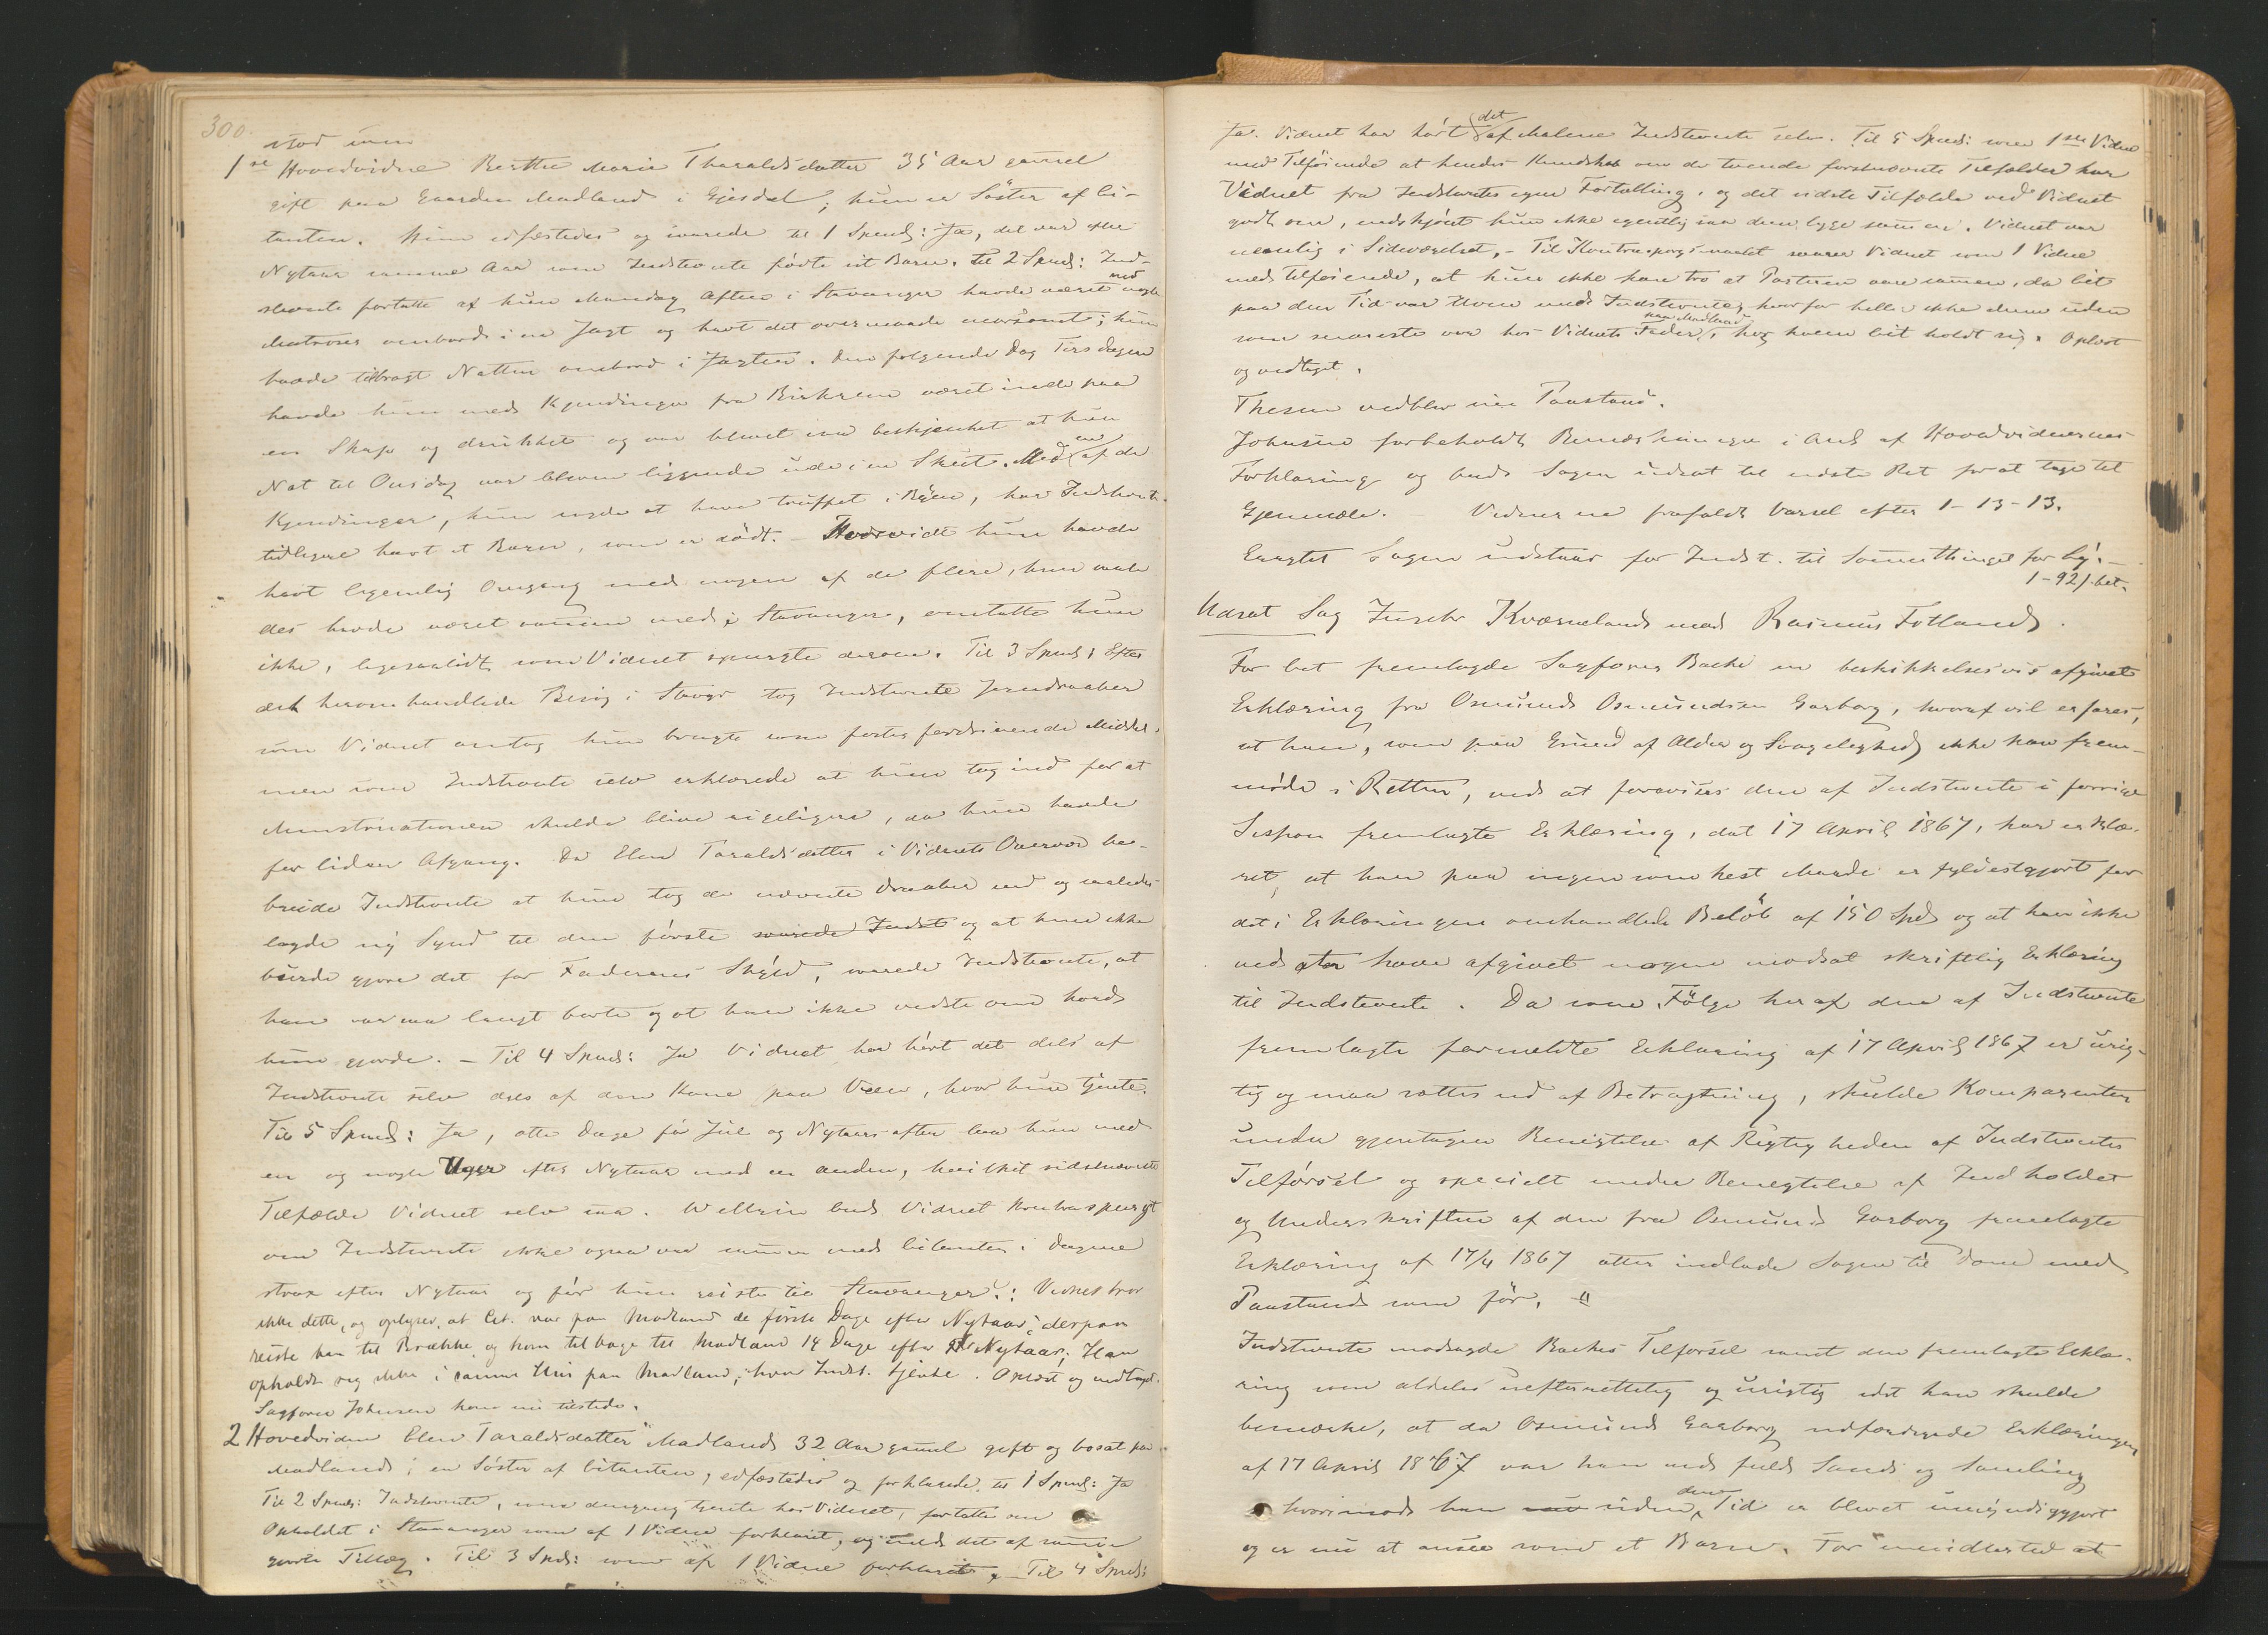 300.
stod inm
1ste Hovedvidne Berthe Marie Tharaldsdatter 35 Aar gammel
gift paa Gaarden Madland i Gjesdal; hun er Söster af Ci-
tanten. Hun edfæstedes og svarede til 1 Spmd: Ja, det var efter
Nytaar samme Aar som Indstevnte födte sit Barn. Til 2 Spmd: Ind-
stevnte fortalte at hun Mandag Aften i Stavanger havde været med nogle
Matroser ombord i en Jagt og havt det overmaade morsomt; hun
havde tilbragt Natten ombord i Jagten. Den følgende Dag Tirsdagen
havde hun med Kjendinger fra Birkrem været inde paa
en Skap og drukket og var blevet saa beskjenket at hun
Nat til Onsdag var bleven liggende ude i en Skut. Med en af de
Kjendinger, hun sagde at have truffet i Byen, har Indstevnte
tidligere havt et Barn, som er dödt. – Hvorvidt hun havde
havt legemlig Omgang med nogen af de flere, hun saale
des havde været sammen med i Stavanger, omtalte hun
ikke, ligesaalidt som Vidnet spurgte derom. Til 3 Spmd: Efter
det heromhandlede Besög i Stavgr tog Indstevnte Jerndraaber
som Vidnet antog hun brugte som fosterfordrivende Middel,
men som Indstevnte selv erklærede at hun tog ind for at
Menstruationen skulde blive rigeligere, da hun havde
for liden Afgang. Da Elen Taraldsdatter i Vidnets Overvær be-
breidede Indstevnte at hun tog de nævnte Draaber ind og saaledes
lagde ny Synd til den förste svarede Indst og at hun ikke
burde gjøre det for Faderens Skyld, svarede Indstevnte, at
han var saa langt borte og at han ikke vidste om hvad
hun gjorde. – Til 4 Spmd: Ja Vidnet har hört det dels af
Indstevnte selv dels af den Kone paa Veen, hvor hun tjente.
Til 5 Spmd: Ja, otte Dage för Jul og Nytaarsaften laa hun med
en og nogle Uger efter Nytaar med en anden, hvilket sidstnævnte
Tilfælde Vidnet selv saa. Wettrin bad Vidnet kontraspurgt
om Indstevnte ikke ogsaa var sammen med Citanten i Dagene
strax efter Nytaar og för hun reiste til Stavanger?: Vidnet tror
ikke dette, og oplyser, at Cit. var paa Madland de förste Dage efter Nytaar; derpaa
reiste han til Brække og kom tilbage til Madland 14 Dage efter Nytaar; Han
opholdt sig ikke i samme Hus paa Madland, hvor Indst. tjente. Oplæst og vedtaget.
Sagförer Johnsen kom nu tilstede.
2 Hovedvidne Elen Taraldsdatter Madland 32 Aar gammel gift og bosat paa
Madland; en Söster af Citanten, edfæstedes og forklarede til 1 Spmd: Ja
Til 2 Spmd: Indstevnte, som dengang tjente hos Vidnet, fortalte om
Opholdet i Stavanger som af 1 Vidne forklaret, og med det af samme
gjorte Tillæg. Til 3 Spd: som af 1 Vidne forklaret. – Til 4 Spmd:
Ja. Vidnet har hört det af Malene Indstevnte selv. Til 5 Spmd: som 1ste Vidne
med Tilföiende at hendes Kundskab om de tvende förstnævnte Tilfælder har
Vidnet fra Indstevntes egen Fortælling, og det sidste Tilfælde ved Vidnet
godt om, endskjönt hun ikke egentlig saa dem ligge sammen. Vidnet var
nemlig i Sideværelset. – Til Kontraspörgsmaalet svarer Vidnet som 1 Vidne
med tilføiende, at hun ikke kan tro at Parterne vare sammen, da Cit
paa den Tid var Uven med Indstevnte, hvorfor heller ikke denne uden
som senereste var hos Vidnets Fader paa Madland, hos hvem Cit holdt sig. Oplæst
og vedtaget.
Thesen vedblev sin Paastand.
Johnsen forbeholdt Bemærkninger i Anl af Hovedvidnernes
Forklaring og bad Sagen udsat til næste Ret for at tage til
Gjenmæle. – Vidnerne frafaldt Varsel efter 1-13-13.
Eragtet Sagen udstaar for Indst. til Sommerthinget for Gj. –
1-92/ bet.
Udsat Sag Inscbr Kværneland mod Rasmus Fotland.
For Cit fremlagde Sagförer Backe en beskikkelsesvis afgivet
Erklæring fra Osmund Osmundsen Garborg, hvoraf vil erfares,
at han, som paa Grund af Alder og Svagelighed ikke kan frem-
möde i Retten, ved at forevises den af Indstevnte i forrige
Session fremlagte Erklæring, dat 17 April 1867, har erklæ-
ret, at han paa ingensomhelst Maade er fyldestgjort for
det i Erklæringen omhandlede Belöb af 150 Spd og at han ikke
ved at have afgivet nogen modsat skriftlig Erklæring
til Indstevnte. Da som Fölge heraf den af Indstevnte
fremlagte formeldte Erklæring af 17 April 1867 er urig-
tig og maa sættes ud af Betragtning, skulde Komparenten
under gjentagen Benegtelse af Rigtigheden af Indstevntes
Tilförsel og specielt under Benegtelse af Indholdet
og Underskriften af den fra Osmund Garborg fremlagte
Erklæring af 17/4 1867 atter indlade Sagen til Dom med
Paastand som för.
Indstevnte modsagde Backes Tilförsel samt den fremlagte Erklæ-
ring som aldeles uefterrettelig og urigtig idet han skulde
bemærke, at da Osmund Garborg udfærdigede Erklæringen
af 17 April 1867 var han ved fuld Sands og Samling
hvorimod han siden den Tid er blevet umyndiggjort
og er nu at ansee som et Barn. For imidlertid at